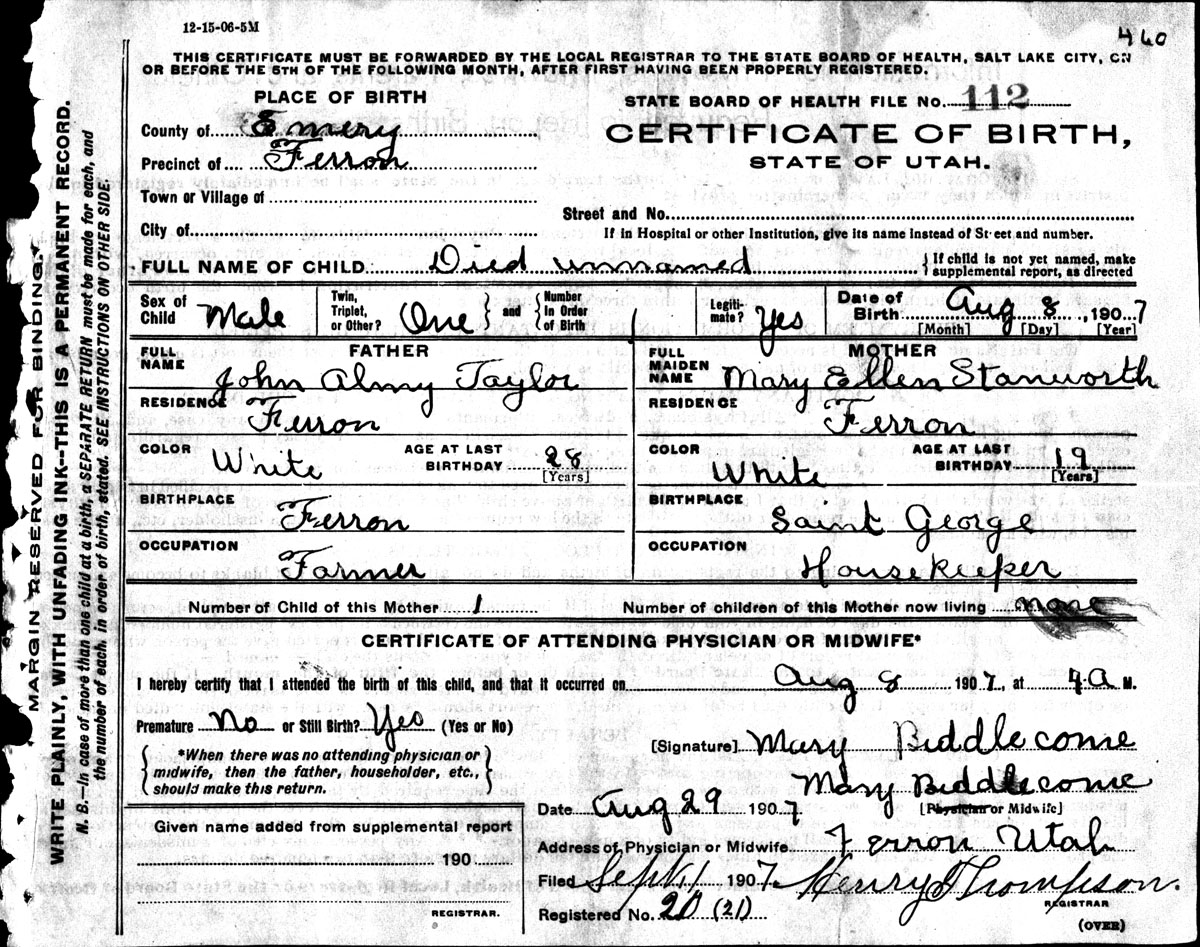 12-15-06-5M
460
THIS CERTIFICATE MUST BE FORWARDED BY THE LOCAL REGISTRAR TO THE STATE BOARD OF HEALTH, SALT LAKE CITY, ON
OR BEFORE THE 5TH OF THE FOLLOWING MONTH, AFTER FIRST HAVING BEEN PROPERLY REGISTERED.
PLACE OF BIRTH
STATE BOARD OF HEALTH FILE No. 112
County of Emery
CERTIFICATE OF BIRTH,
Precinct of Ferron
STATE OF UTAH.
Town or Village of
Street and No.
City of
If in Hospital or other Institution, give its name instead of Street and number.
FULL NAME OF CHILD Died unnamed { If child is not yet named, make
supplemental report, as directed
Sex of Child Male Twin, Triplet, or Other? One } and { Number in Order of Birth 1 Legiti-mate? Yes Date of Birth Aug 8, 1907
[Month] [Day] [Year]
FATHER
MOTHER
FULL NAME John Almy Taylor
FULL MAIDEN NAME Mary Ellen Stanworth
RESIDENCE Ferron
RESIDENCE Ferron
COLOR White AGE AT LAST BIRTHDAY 28 [Years]
COLOR White AGE AT LAST BIRTHDAY 19 [Years]
BIRTHPLACE Ferron
BIRTHPLACE Saint George
OCCUPATION Farmer
OCCUPATION Housekeeper
Number of Child of this Mother 1 Number of children of this Mother now living none
CERTIFICATE OF ATTENDING PHYSICIAN OR MIDWIFE*
I hereby certify that I attended the birth of this child, and that it occurred on Aug 8 1907, at 4 A M.
Premature No or Still Birth? Yes (Yes or No)
{ *When there was no attending physician or
midwife, then the father, householder, etc.,
should make this return. }
[Signature] Mary Biddlecome
Mary Biddlecome
Date Aug 29 1907 [Physician or Midwife]
Given name added from supplemental report
190
REGISTRAR.
Address of Physician or Midwife Ferron Utah
Filed Sept 1 1907 Henry Thompson.
REGISTRAR
Registered No. 20 (21)
(OVER)
MARGIN RESERVED FOR BINDING.
WRITE PLAINLY, WITH UNFADING INK--THIS IS A PERMANENT RECORD.
N. B.—In case of more than one child at a birth, a SEPARATE RETURN must be made for each, and
the number of each, in order of birth, stated. SEE INSTRUCTIONS ON OTHER SIDE.